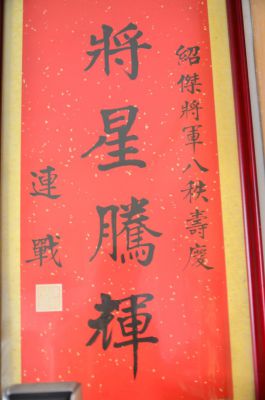 紹傑將軍八秩壽慶
將星騰輝
連戰